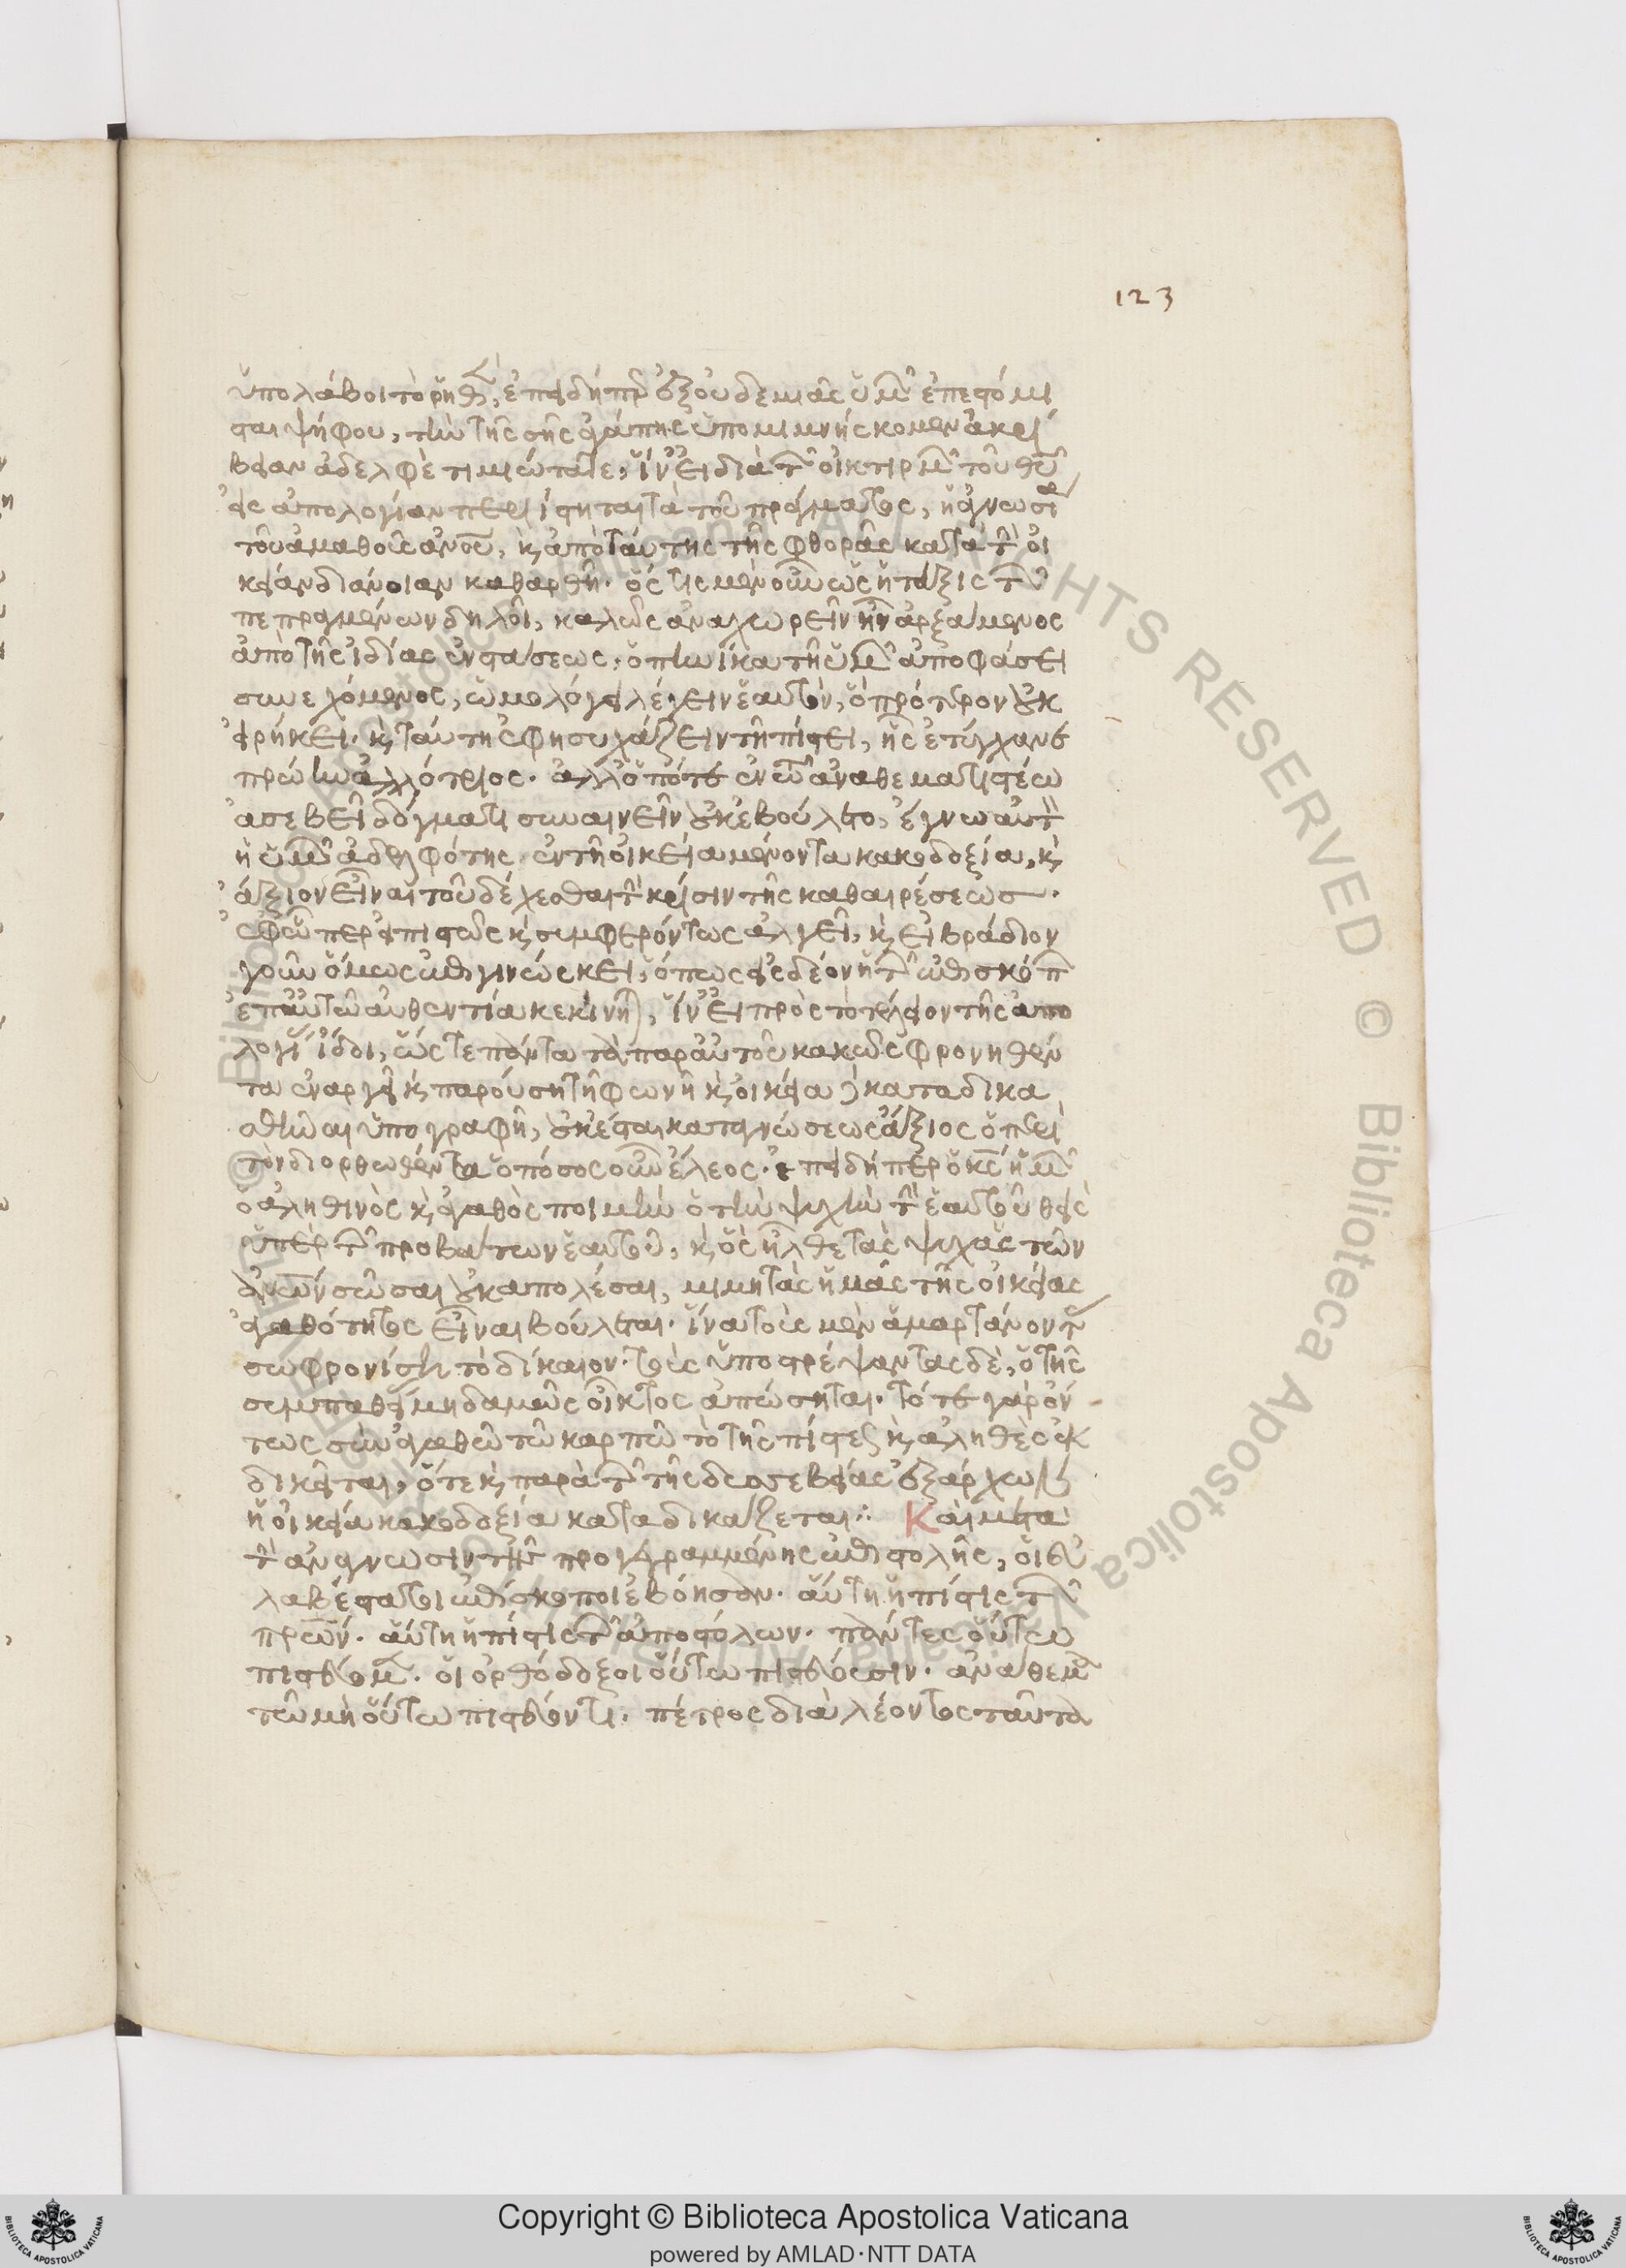 123
ὑπολάβοι τὸ ῥηθὲν, ἐπειδήπερ ἐξ οὐδεμιᾶς ὑμῶν ἐπεστόμι
σται ψήφου, τὴν τῆς σῆς ἀγάπης ὑπομιμνήσκομεν ἀκρί
βειαν ἀδελφὲ τιμιώτατε, ἵν' εἰ διὰ τῶν οἰκτιρμῶν τοῦ θυ
εἰς ἀπολογίαν περιίσταται τὰ τοῦ πράγματος, ἡ ἀγνωσία
τοῦ ἀμαθοῦς ανου, κ ἀπὸ ταύτης τῆς φθορᾶς κατὰ τὴν οἰ
κείαν διάνοιαν καθαρθῆ. ὅστις μὲν οὖν ὡς ἡ τάξις τῶν
πεπραγμένων δηλοῖ, καλῶς ἀναχωρεῖν ἦν ἀρξάμενος
ἀπὸ τῆς ἰδίας ἐνστάσεως, ὁπηνίκα τῆ ὑμῶν ἀποφάσει
συνεχόμενος, ὡμολόγει λέγειν ἑαυτὸν, ὃ πρότερον οὐκ
εἰρήκει. κ ταύτη ἐφησυχάζειν τῆ πίστει, ἧς ἐτύγχανε
πρώην ἀλλότριος. ἀλλ' ὁπότε ἐν τῶ ἀναθεματιστέω
ἀσεβεῖ δόγματι συναινεῖν οὐκ ἐβούλετο, ἔγνω αὐτὸν
ἡ ὑμῶν ἀδελφότης ἐν τῆ οἰκεία μένοντα κακοδοξία, κ
ἄξιον εἶναι τοῦ δέχεσθαι τὴν κρίσιν τῆς καθαιρέσεως.
ἐφ' ὧ περ εἰ πιστῶς κ συμφερόντως ἀλγεῖ, κ εἰ βράδιον
γοῦν ὅμως ἐπιγινώσκει, ὅπως εἰς δέον ἡ τῶν ἐπισκόπων
ἐπ' αὐτῶ αὐθεντία κεκίνηται, ἵν' εἰ πρὸς τὸ τέλειον τῆς ἀπο
λογίας ἴδοι, ὥστε πάντα τὰ παρ' αὐτοῦ κακῶς φρονηθέν
τα ἐναργεῖ κ παρούση τῆ φωνῆ κ οἰκεία καταδικα
σθῆναι ὑπογραφῆ, οὐκ ἔσται καταγνώσεως ἄξιος ὁ περὶ
τὸν διορθωθέντα ὁπόσος οὖν ἔλεος. ἐπειδήπερ ὁ κς ἡμῶν
ὁ ἀληθινὸς κ ἀγαθὸς ποιμὴν ὁ τὴν ψυχὴν τὴν ἑαυτοῦ θεὶς
ὑπὲρ τῶν προβάτων ἑαυτοῦ, κ ὃς ἦλθε τὰς ψυχὰς τῶν
ανων σῶσαι οὐκ ἀπολέσαι, μιμητὰς ἡμᾶς τῆς οἰκείας
ἀγαθότητος εἶναι βούλεται. ἵνα τοὺς μὲν ἁμαρτάνοντας
σωφρονίση τὸ δίκαιον. τοὺς ὑποστρέψαντας δὲ, ὁ τῆς
συμπαθείας μηδαμῶς οἶκτος ἀπώσηται. τότε γὰρ ὄν
τως σὺν ἀγαθῶ τῶ καρπῶ τὸ τῆς πίστεως κ ἀληθὲς ἐκ
δικεῖται, ὅτε κ παρὰ τῶν τῆς δεοσεβείας ἐξάρχων
ἡ οἰκεία κακοδοξία καταδικάζεται:· Καὶ μετὰ
τὴν ἀνάγνωσιν τῆς προγεγραμμένης ἐπιστολῆς, οἱ εὐ
λαβέστατοι ἐπίσκοποι ἐβόησαν. αὕτη ἡ πίστις τῶν
πρων. αὕτη ἡ πίστις τῶν ἀποστόλων. πάντες οὕτω
πιστεύομεν. οἱ ὀρθόδοξοι οὕτω πιστεύουσιν. ἀνάθεμα
τῶ μὴ οὕτω πιστεύοντι. πέτρος διὰ λέοντος ταῦτα
Copyright © Biblioteca Apostolica Vaticana
powered by AMLAD·NTT DATA